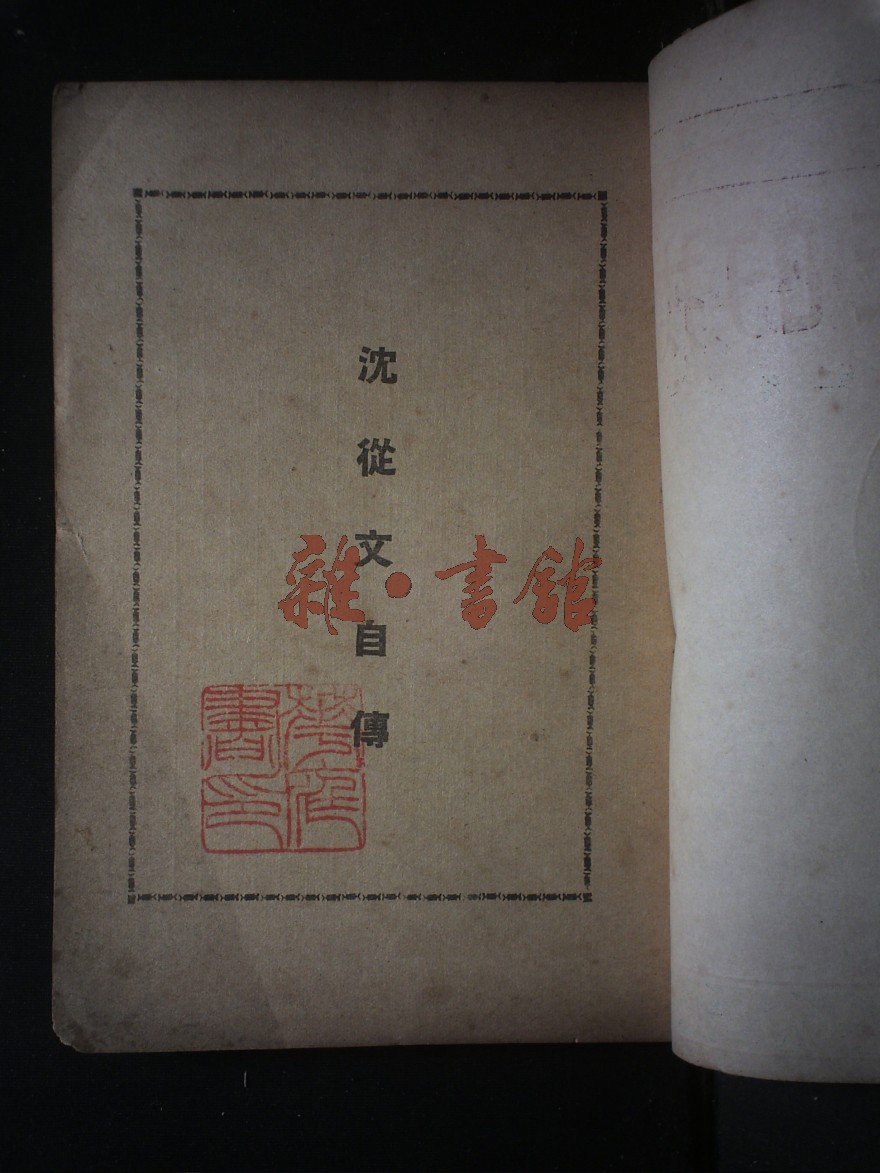 沈從文自傳
雜·書館